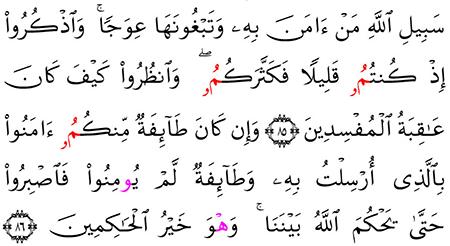 سَبِيلِ اللَّهِ مَنۡ ءَامَنَ بِهِۦ وَتَبۡغُونَهَا عِوَجًاۚ وَٱذۡكُرُوٓاْ
إِذۡ كُنتُمُۥ قَلِيلًا فَكَثَّرَكُمُۥۖ وَٱنظُرُواْ كَيۡفَ كَانَ
عَٰقِبَةُ ٱلۡمُفۡسِدِينَ ٨٥ وَإِن كَانَ طَآئِفَةٌ مِّنكُمُۥٓ ءَامَنُواْ
بِٱلَّذِيٓ أُرۡسِلۡتُ بِهِۦ وَطَآئِفَةٌ لَّمۡ يُومِنُواْ فَٱصۡبِرُواْ
حَتَّىٰ يَحۡكُمَ ٱللَّهُ بَيۡنَنَاۚ وَهۡوَ خَيۡرُ ٱلۡحَٰكِمِينَ ٨٦